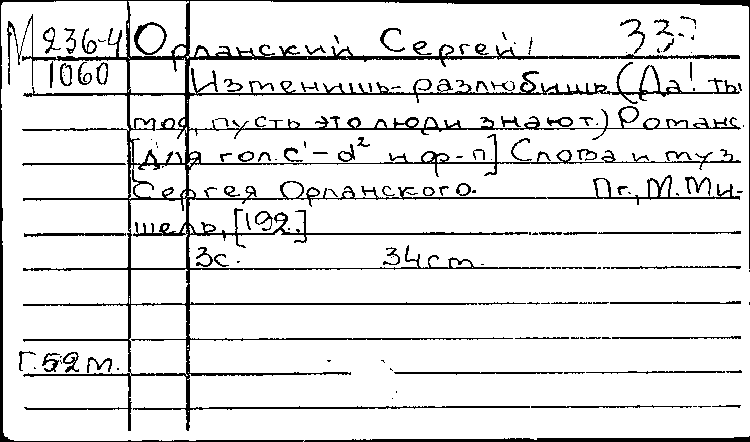 М 236-4 Орланский, Сергей
1060 Изменишь-разлюбишь (Да! ты
моя, пусть это люди знают.) Романс
[Для гол. c¹-d² и ф-п] Слова и муз.
Сергея Орланского. Пг., М. Ми-
шель, [192.]
3с. 34 см.
Г. 52 м.